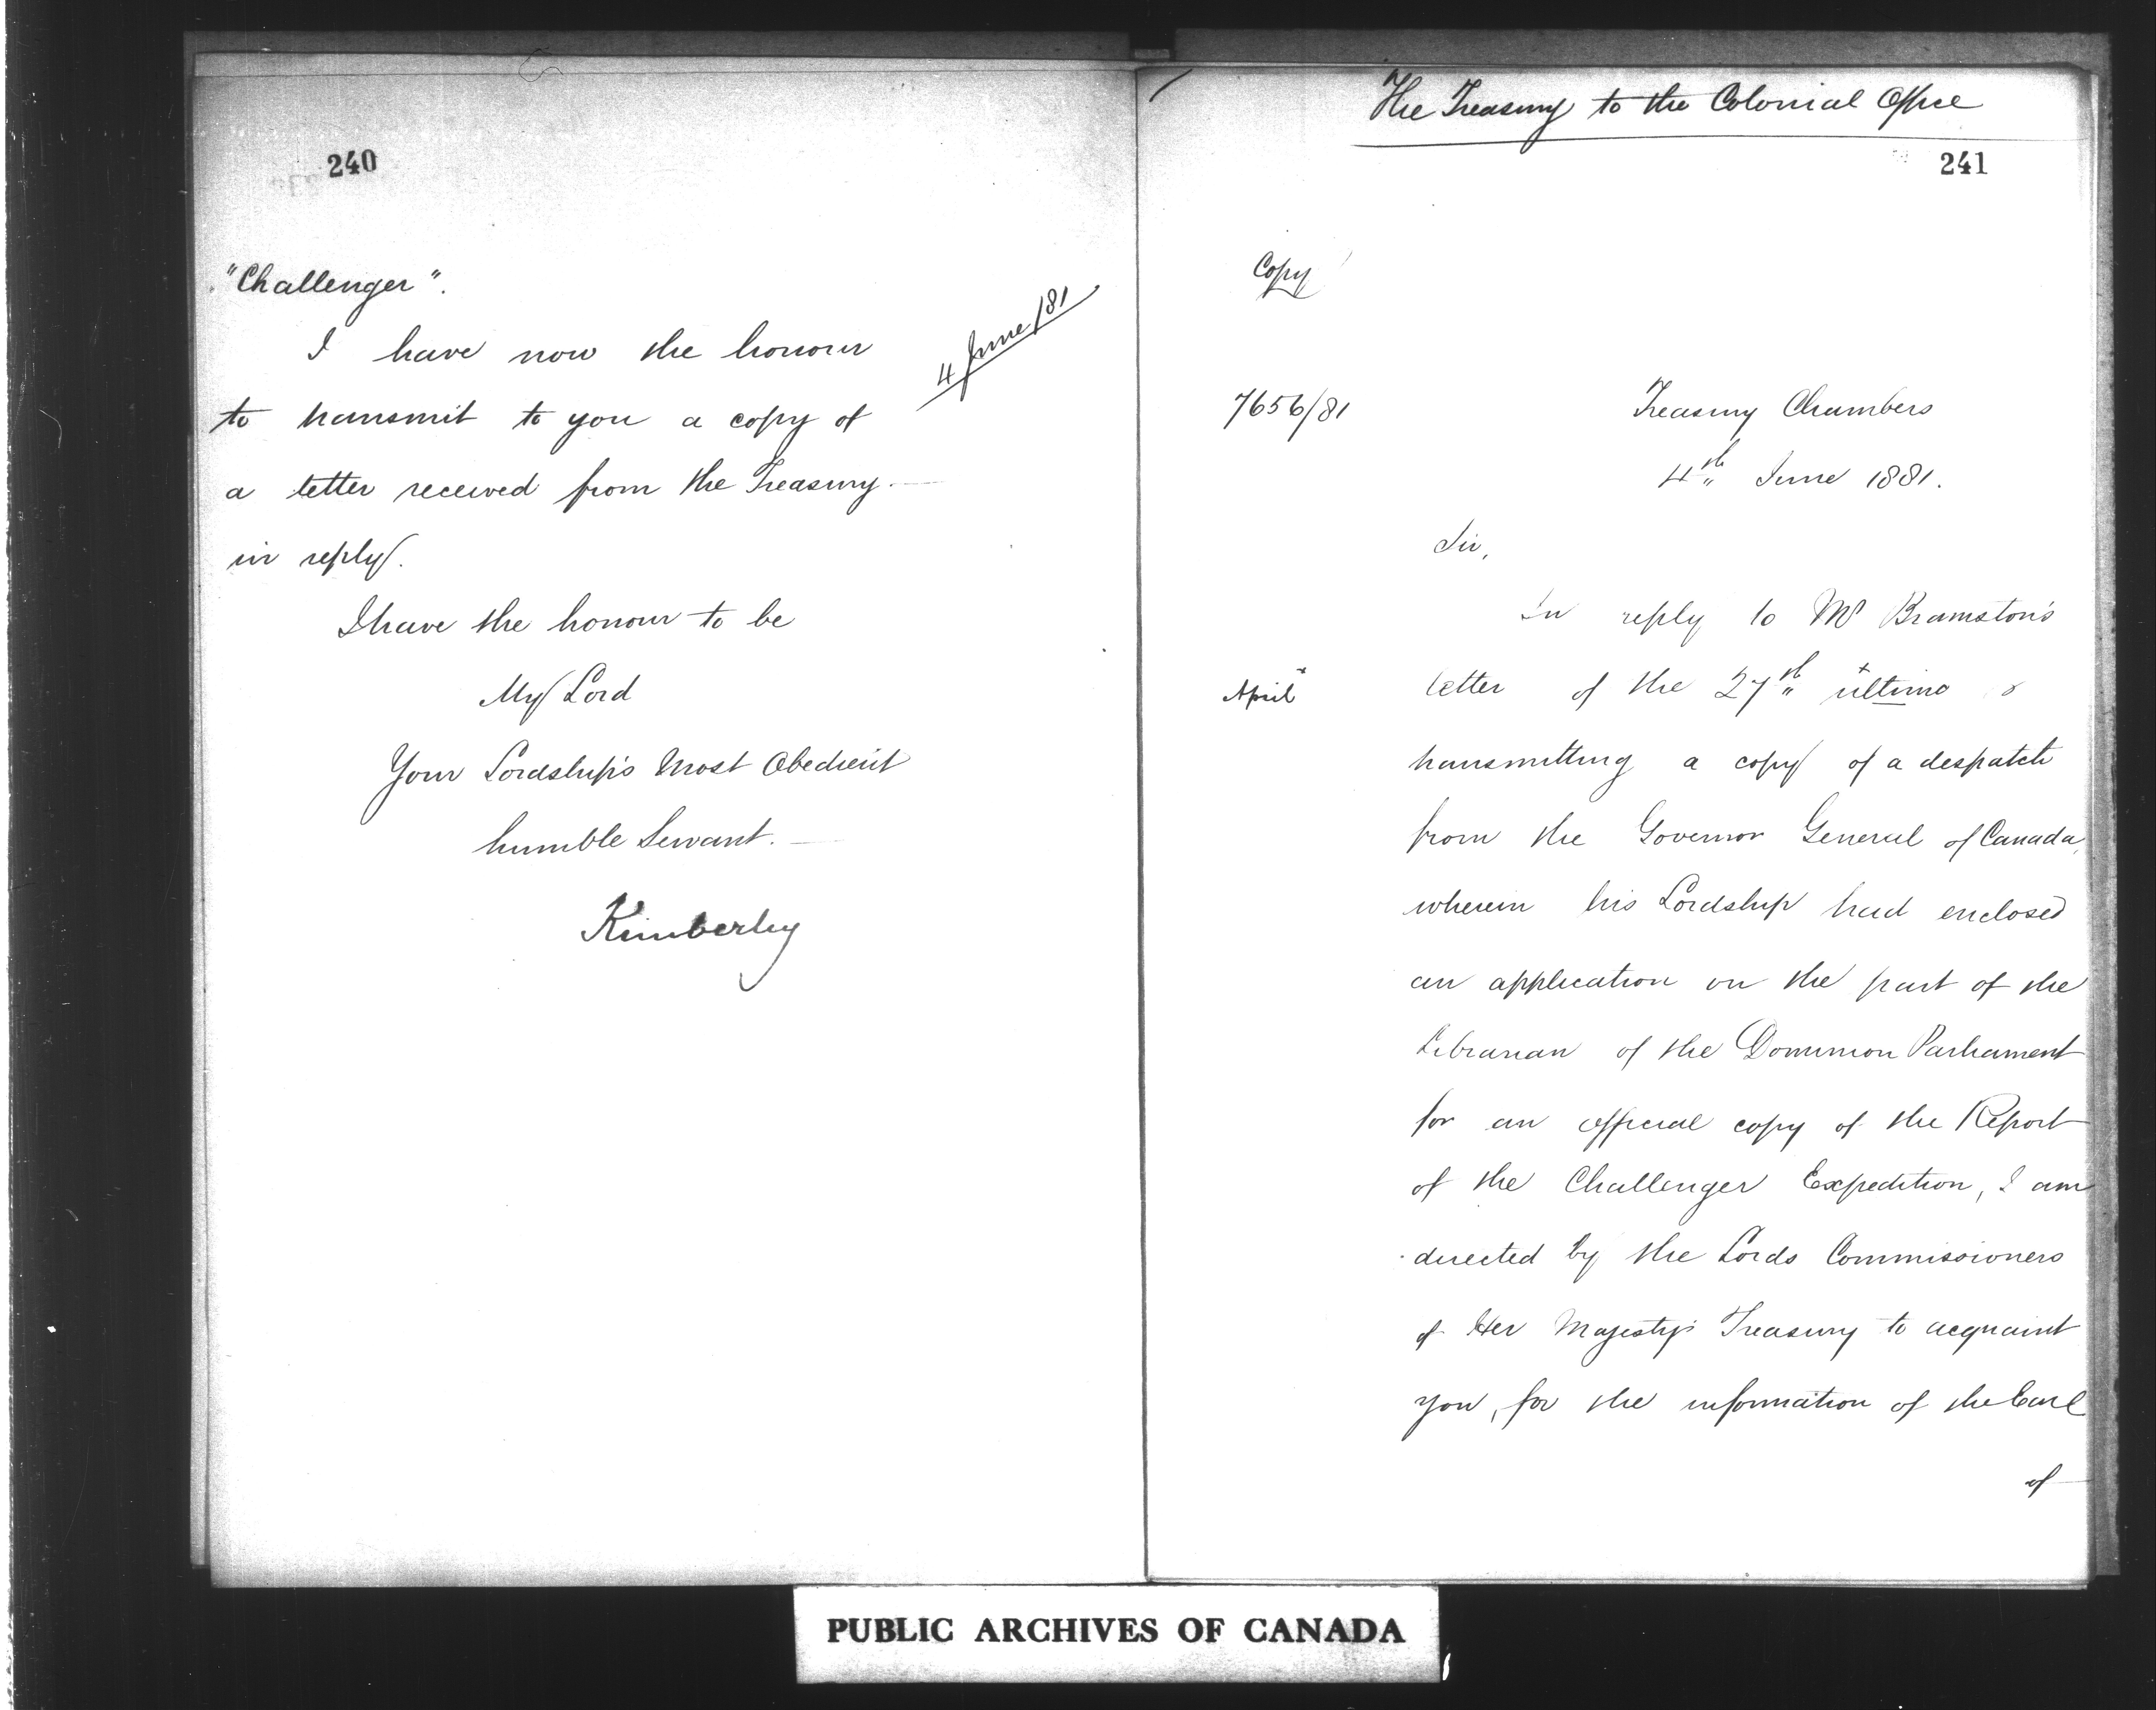 240
"Challenger".
I have now the honour
to transmit to you a copy of
a letter received from the Treasury
in reply.
4 June/81
I have the honour to be
My Lord
Your Lordship's Most Obedient
humble Servant.
Kimberley
The Treasury to the Colonial Office
241
Copy
7656/81
Treasury Chambers
4th June 1881.
Sir,
In reply to Mr Bramston's
April +
letter of the 27th + ultimo
transmitting a copy of a despatch
from the Governor General of Canada,
wherein his Lordship had enclosed
an application on the part of the
Librarian of the Dominion Parliament
for an official copy of the Report
of the Challenger Expedition, I am
directed by the Lords Commissioners
of Her Majesty's Treasury to acquaint
you, for the information of the Earl
of
PUBLIC ARCHIVES OF CANADA